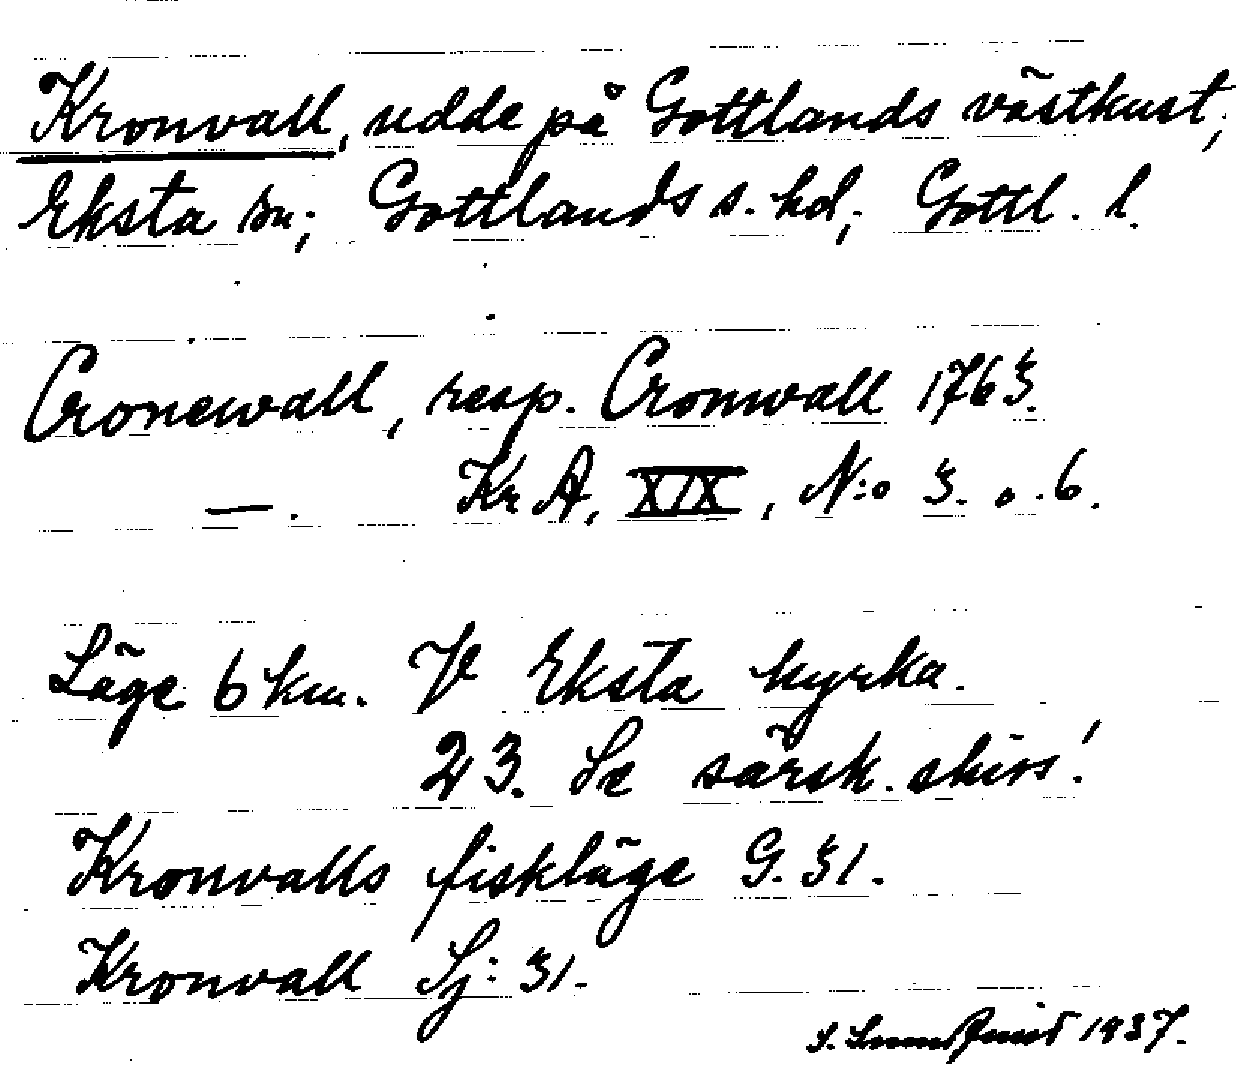 Kronvall, udde på Gottlands västkust;
Eksta sn; Gottlands s. hd; Gottl. l.
Cronewall, resp. Cronwall 1763.
—. Kr A, XIX, N:o 3. o. 6.
Läge 6 km. V Eksta kyrka.
23. Se särsk. skiss!
Kronvalls fiskläge G. 31.
Kronvall Sj: 31.
S. Lundquist 1937.